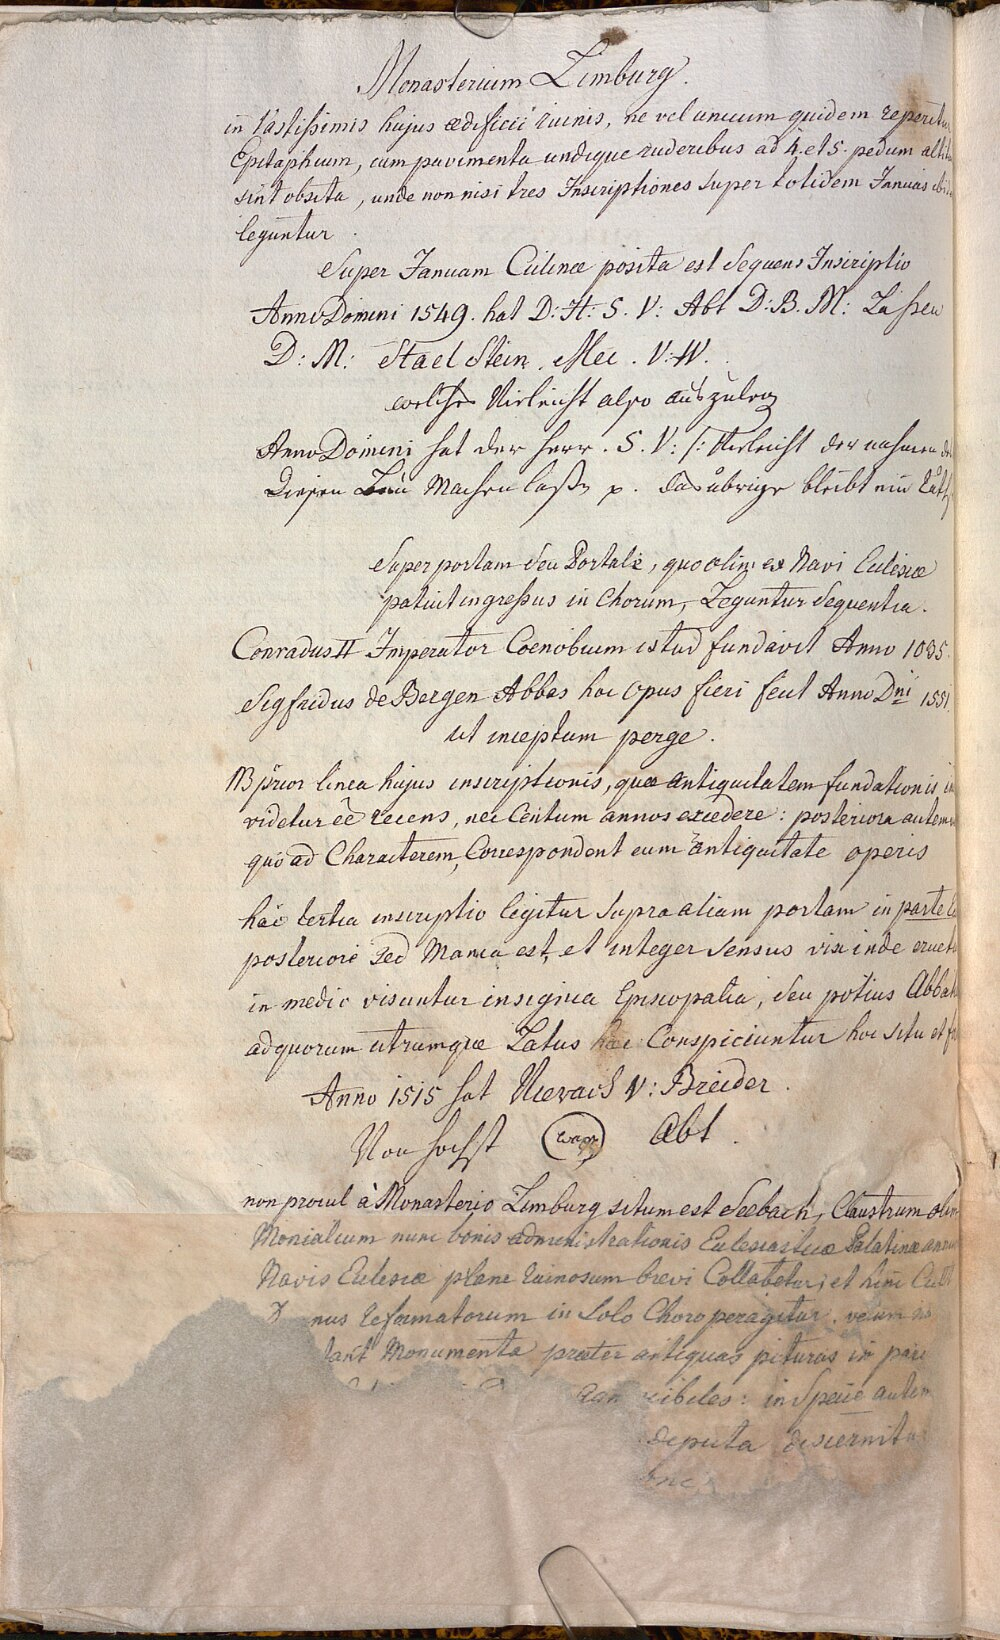 Monasterium Limburg.
in Vastissimis hujus ædificii ruinis, ne vel unicum quidem reperitur
Epitaphium, cum pavimenta undique ruderibus ad 4. et 5. pedum altit
sint obsita, unde non nisi tres Inscriptiones super totidem Januas ibid
leguntur.
Super Januam Culinæ posita est sequens Inscriptio
Anno Domini 1549. hat D: H: S. V: Abt D: B. M: Laßen
D: M: Stael Stein. Mec. V: W.
welches Vieleicht also auszuleg
Anno Domini hat der Herr. S. V: /: Vieleicht der nahmen de
Diesen Bau Machen laßn p. das übrige bleibt ein Räth
Super portam seu Portale, quo olim ex Navi Eclesiæ
patuit ingressus in Chorum, Leguntur Sequentia.
Conradus II Imperator Coenobium istud fundavit Anno 1035.
Sigfridus de Bergen Abbas hoc opus fieri fecit Anno Dni 1551.
ut inceptum perge.
NB prior linea hujus inscriptionis, quæ antiquitatem fundationis in
videtur eê recens, nec Centum annos excedere: posteriora autem
quo ad Characterem, Correspondent cum antiquitate operis
hæc tertia inscriptio legitur supra aliam portam in parte
posteriori sed Manca est, et integer sensus vix inde eruet
in medio visuntur insignia Episcopalia, seu potius Abbat
ad quorum utrumque Latus hæc Conspiciuntur hoc situ et f
Anno 1515 hat V: Breider.
Von hochst wapp Abt.
non procul à Monasterio Limburg situm est Seebach, Claustrum olim
Monialium nunc bonis administrationis Eclesiasticæ Palatinæ
Navis Eclesiæ plane ruinosum brevi Collabetur, et hinc Cult
nus reformatorum in solo Choro peragitur. verum
tant Monumenta præter antiquas pituras in pari
cibiles: in Specie autem
depicta discernitu